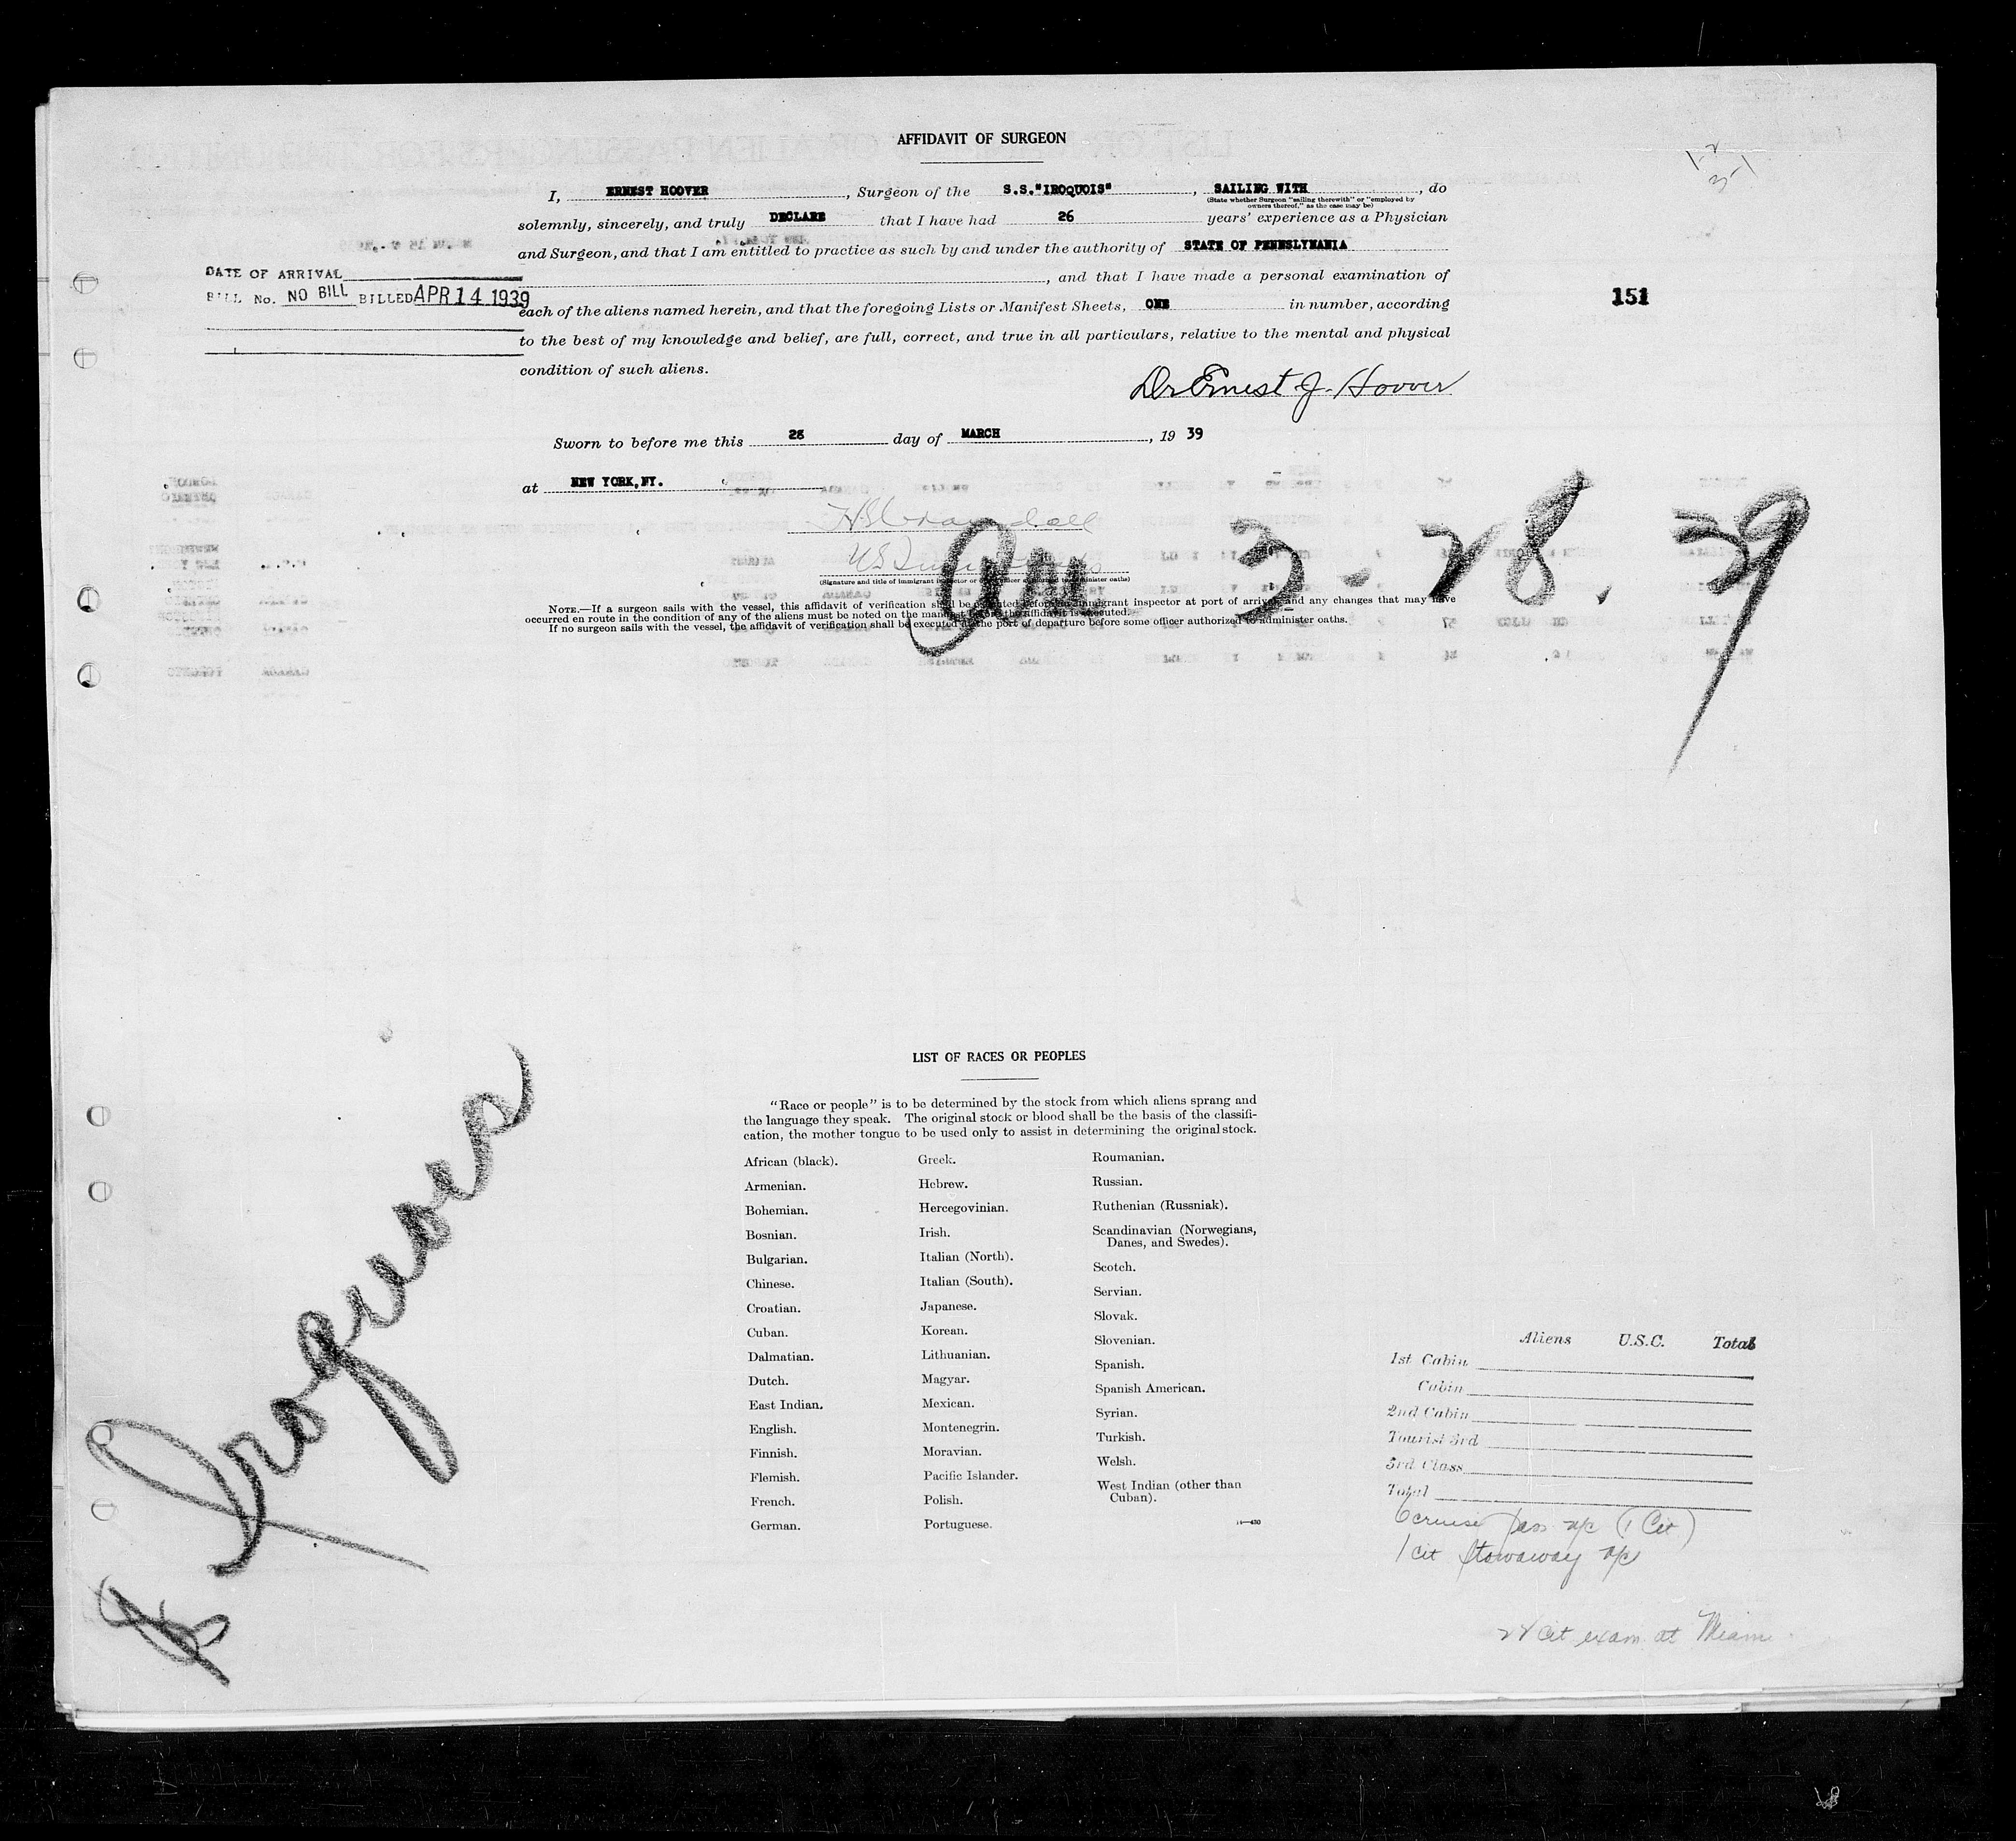 AFFIDAVIT OF SURGEON
I, ERNEST HOOVER, Surgeon of the S.S."IROQUOIS", SAILING WITH, do
(State whether Surgeon "sailing therewith" or "employed by
owners thereof," as the case may be)
solemnly, sincerely, and truly DECLARE that I have had 26 years' experience as a Physician
and Surgeon, and that I am entitled to practice as such by and under the authority of STATE OF PENNSLYVANIA
, and that I have made a personal examination of
each of the aliens named herein, and that the foregoing Lists or Manifest Sheets, ONE in number, according
to the best of my knowledge and belief, are full, correct, and true in all particulars, relative to the mental and physical
condition of such aliens.
DATE OF ARRIVAL
BILL No. NO BILL BILLED APR 14 1939
151
Dr Ernest J. Hoover
Sworn to before me this 28 day of MARCH, 19 39
at NEW YORK, NY.
(Signature and title of immigrant inspector or other officer authorized to administer oaths)
am 3-28.39
NOTE.—If a surgeon sails with the vessel, this affidavit of verification shall be executed before an immigrant inspector at port of arrival and any changes that may have
occurred en route in the condition of any of the aliens must be noted on the manifest before the affidavit is executed.
If no surgeon sails with the vessel, the affidavit of verification shall be executed at the port of departure before some officer authorized to administer oaths.
Iroquois
LIST OF RACES OR PEOPLES
"Race or people" is to be determined by the stock from which aliens sprang and
the language they speak. The original stock or blood shall be the basis of the classifi-
cation, the mother tongue to be used only to assist in determining the original stock.
African (black).
Armenian.
Bohemian.
Bosnian.
Bulgarian.
Chinese.
Croatian.
Cuban.
Dalmatian.
Dutch.
East Indian.
English.
Finnish.
Flemish.
French.
German.
Greek.
Hebrew.
Hercegovinian.
Irish.
Italian (North).
Italian (South).
Japanese.
Korean.
Lithuanian.
Magyar.
Mexican.
Montenegrin.
Moravian.
Pacific Islander.
Polish.
Portuguese.
Roumanian.
Russian.
Ruthenian (Russniak).
Scandinavian (Norwegians,
Danes, and Swedes).
Scotch.
Servian.
Slovak.
Slovenian.
Spanish.
Spanish American.
Syrian.
Turkish.
Welsh.
West Indian (other than
Cuban).
14—430
Aliens U.S.C. Total
1st Cabin
Cabin
2nd Cabin
Tourist 3rd
3rd Class
Total
6 cruise pass n/c (1 Cit)
1 cit stowaway n/c
24 cit exam. at Miami